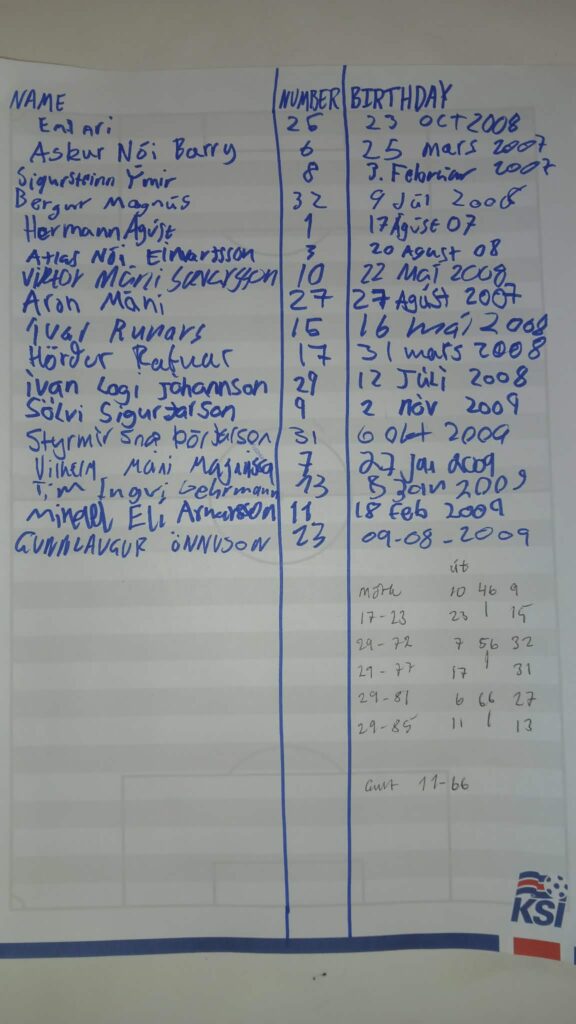 NAME NUMBER BIRTHDAY
Emil ari 25 23 oct 2008
Askur Nói Barry 6 25 mars 2007
Sigursteinn Ýmir 8 3. Februar 2007
Bergur Magnús 32 9 Júl 2008
Hermann Ágúst 1 17 Ágúst 07
Atlas Nói Einarsson 3 20 August 08
Viktor Máni Sævarsson 10 22 Maí 2008
Aron Máni 27 27 Agúst 2007
Ívar Rúnars 15 16 maí 2008
Hörður Rafnar 17 31 mars 2008
ívan Logi Jóhannson 29 12 Júlí 2008
Sölvi Sigurjarson 9 2 nóv 2009
Styrmir 31 6 okt 2009
Vilhelm Máni 7 27 Jan 2009
Tim Ingvi Gehrmann 13 3 Jan 2009
Mikael Elí Arnarsson 11 18 feb 2009
GUNNLAUGUR ÖNNUSON 23 09-08-2009
út
Mörk 10 46 9
17-23 23 | 15
29-72 7 56 32
29-77 17 | 31
29-81 6 66 27
29-85 11 | 13
Gult 11-66
KSÍ